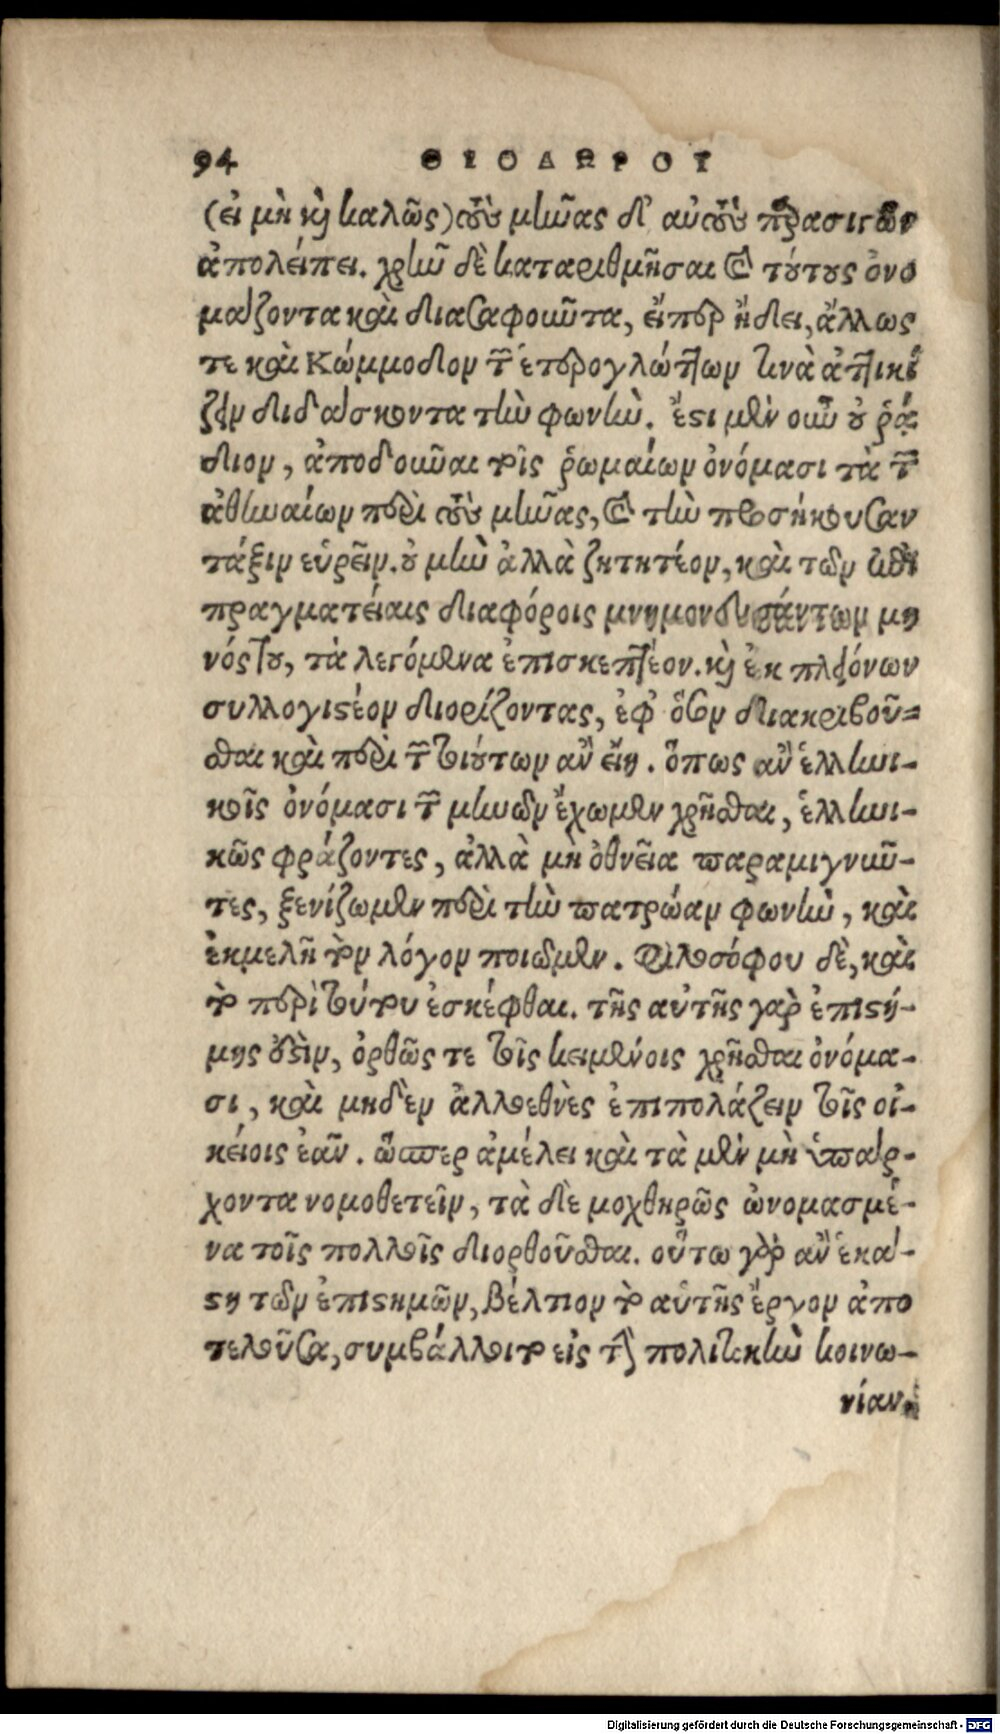 94 ΘΕΟΔΩΡΟΥ
(εἰ μὴ καὶ καλῶς) τοὺς μῆνας δι' αὐτοὺς
ἀπολείπει. χρῆν δὲ καταριθμῆσαι καὶ τούτους ὀνο
μάζοντα καὶ διασαφοῦντα, εἴπερ ᾔδει, ἄλλως
τε καὶ Κώμμοδον τῶν ἑτερογλώττων τινὰ ἀττικί
ζειν διδάσκοντα τὴν φωνήν. ἔστι μὲν οὖν οὐ ῥᾴ
διον, ἀποδοῦναι τοῖς ῥωμαίων ὀνόμασι τὰ τῶν
ἀθηναίων περὶ τοὺς μῆνας, καὶ τὴν προσήκουσαν
τάξιν εὑρεῖν. οὐ μὴν ἀλλὰ ζητητέον, καὶ τῶν ἐπὶ
πραγματείαις διαφόροις μνημονευσάντων μη
νός του, τὰ λεγόμενα ἐπισκεπτέον. καὶ ἐκ πλειόνων
συλλογιστέον διορίζοντας, ἐφ' ὅσον διακριβοῦ-
σθαι καὶ περὶ τῶν τοιούτων ἂν εἴη. ὅπως ἂν ἑλληνι-
κοῖς ὀνόμασι τῶν μηνῶν ἔχωμεν χρῆσθαι, ἑλληνι-
κῶς φράζοντες, ἀλλὰ μὴ ὀθνεῖα παραμιγνύν-
τες, ξενίζωμεν περὶ τὴν πατρῴαν φωνὴν, καὶ
ἐκμελῆ τὸν λόγον ποιῶμεν. Φιλοσόφου δὲ, καὶ
τὸ περὶ τούτου ἐσκέφθαι. τῆς αὐτῆς γὰρ ἐπιστή-
μης οὖσιν, ὀρθῶς τε τοῖς κειμένοις χρῆσθαι ὀνόμα-
σι, καὶ μηδὲν ἀλλοεθνὲς ἐπιπολάζειν τοῖς οἰ-
κείοις ἐᾶν. ὥσπερ ἀμέλει καὶ τὰ μὲν μὴ ὑπάρ-
χοντα νομοθετεῖν, τὰ δὲ μοχθηρῶς ὠνομασμέ-
να τοῖς πολλοῖς διορθοῦσθαι. οὕτω γὰρ ἂν ἑκά-
στη τῶν ἐπιστημῶν, βέλτιον τὸ αὑτῆς ἔργον ἀπο
τελοῦσα, συμβάλλοιτο εἰς τὴν πολιτικὴν κοινω-
νίαν
Digitalisierung gefördert durch die Deutsche Forschungsgemeinschaft - DFG